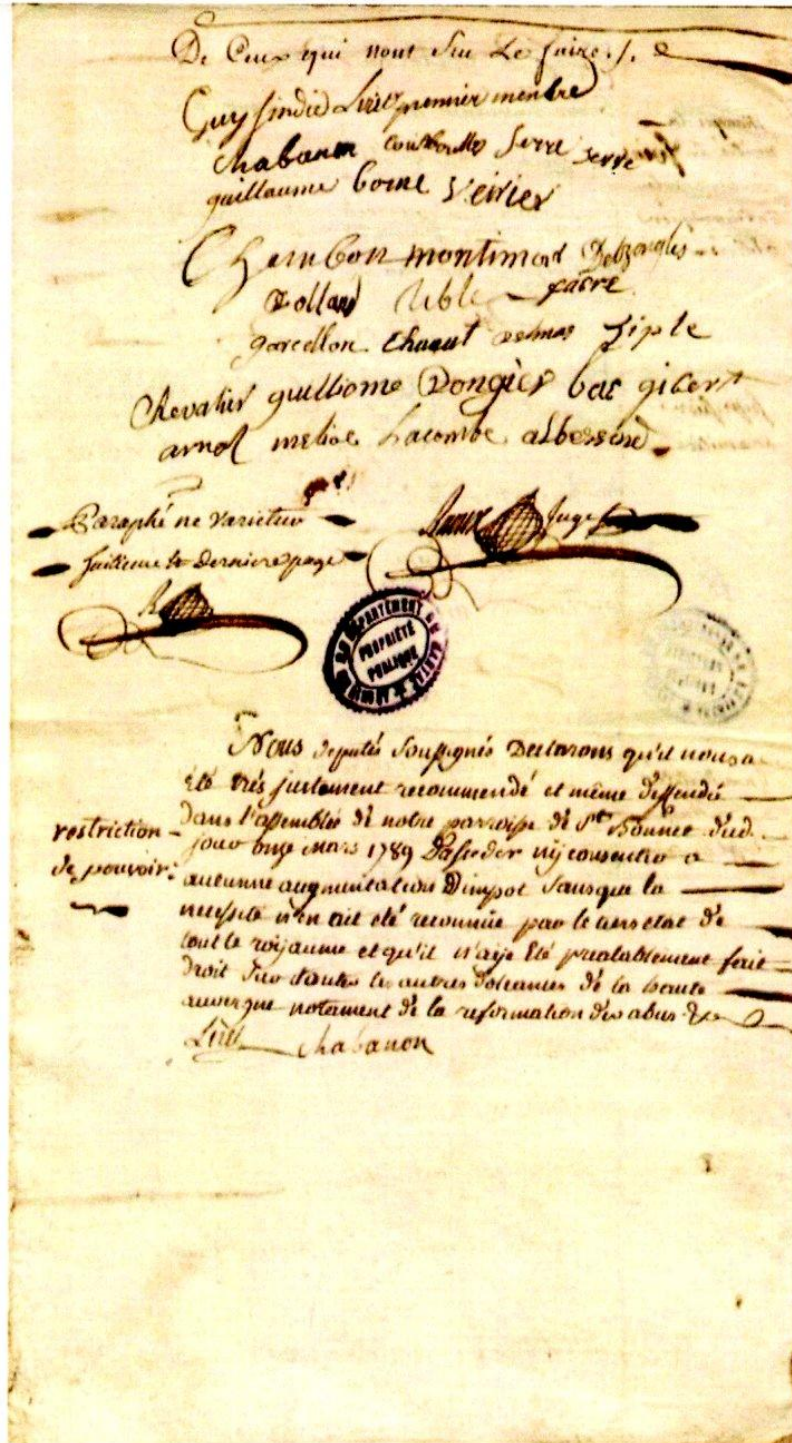 De Ceux qui nont Sçu Le faire ./.
Guy sindic Liret premier membre
Chabanon Serre Serre
guillaume borne veirier
Chambon montimart Delzongles
rolland rible fabre
garcellon Chanut delmas Ziple
Chevalier guillaume Dongier bac gibert
arnal meliac Lacombe
Paraphé ne varietur
huitieme et Derniere page
Roux Juge
R
DEPARTEMENT DU
PROPRIÉTÉ
PUBLIQUE
Nous deputés Soussignés Declarons qu'il nous a
été trés justement recommendé et même deffendû
Dans l'assemblée de notre parroisse de St Bonnet dud.
jour onze mars 1789 D'acceder nÿ consentir a
aucunne augmentation D'impot Sans que la
necessité n'en ait été reconnüe par le tiers etat de
tout le roÿaume et qu'il n'aÿe Eté prealablement fait
droit Sur toutes les autres doleances de la haute
auvergne notament de la reformation des abus &c
restriction
de pouvoir
Liret Chabanon